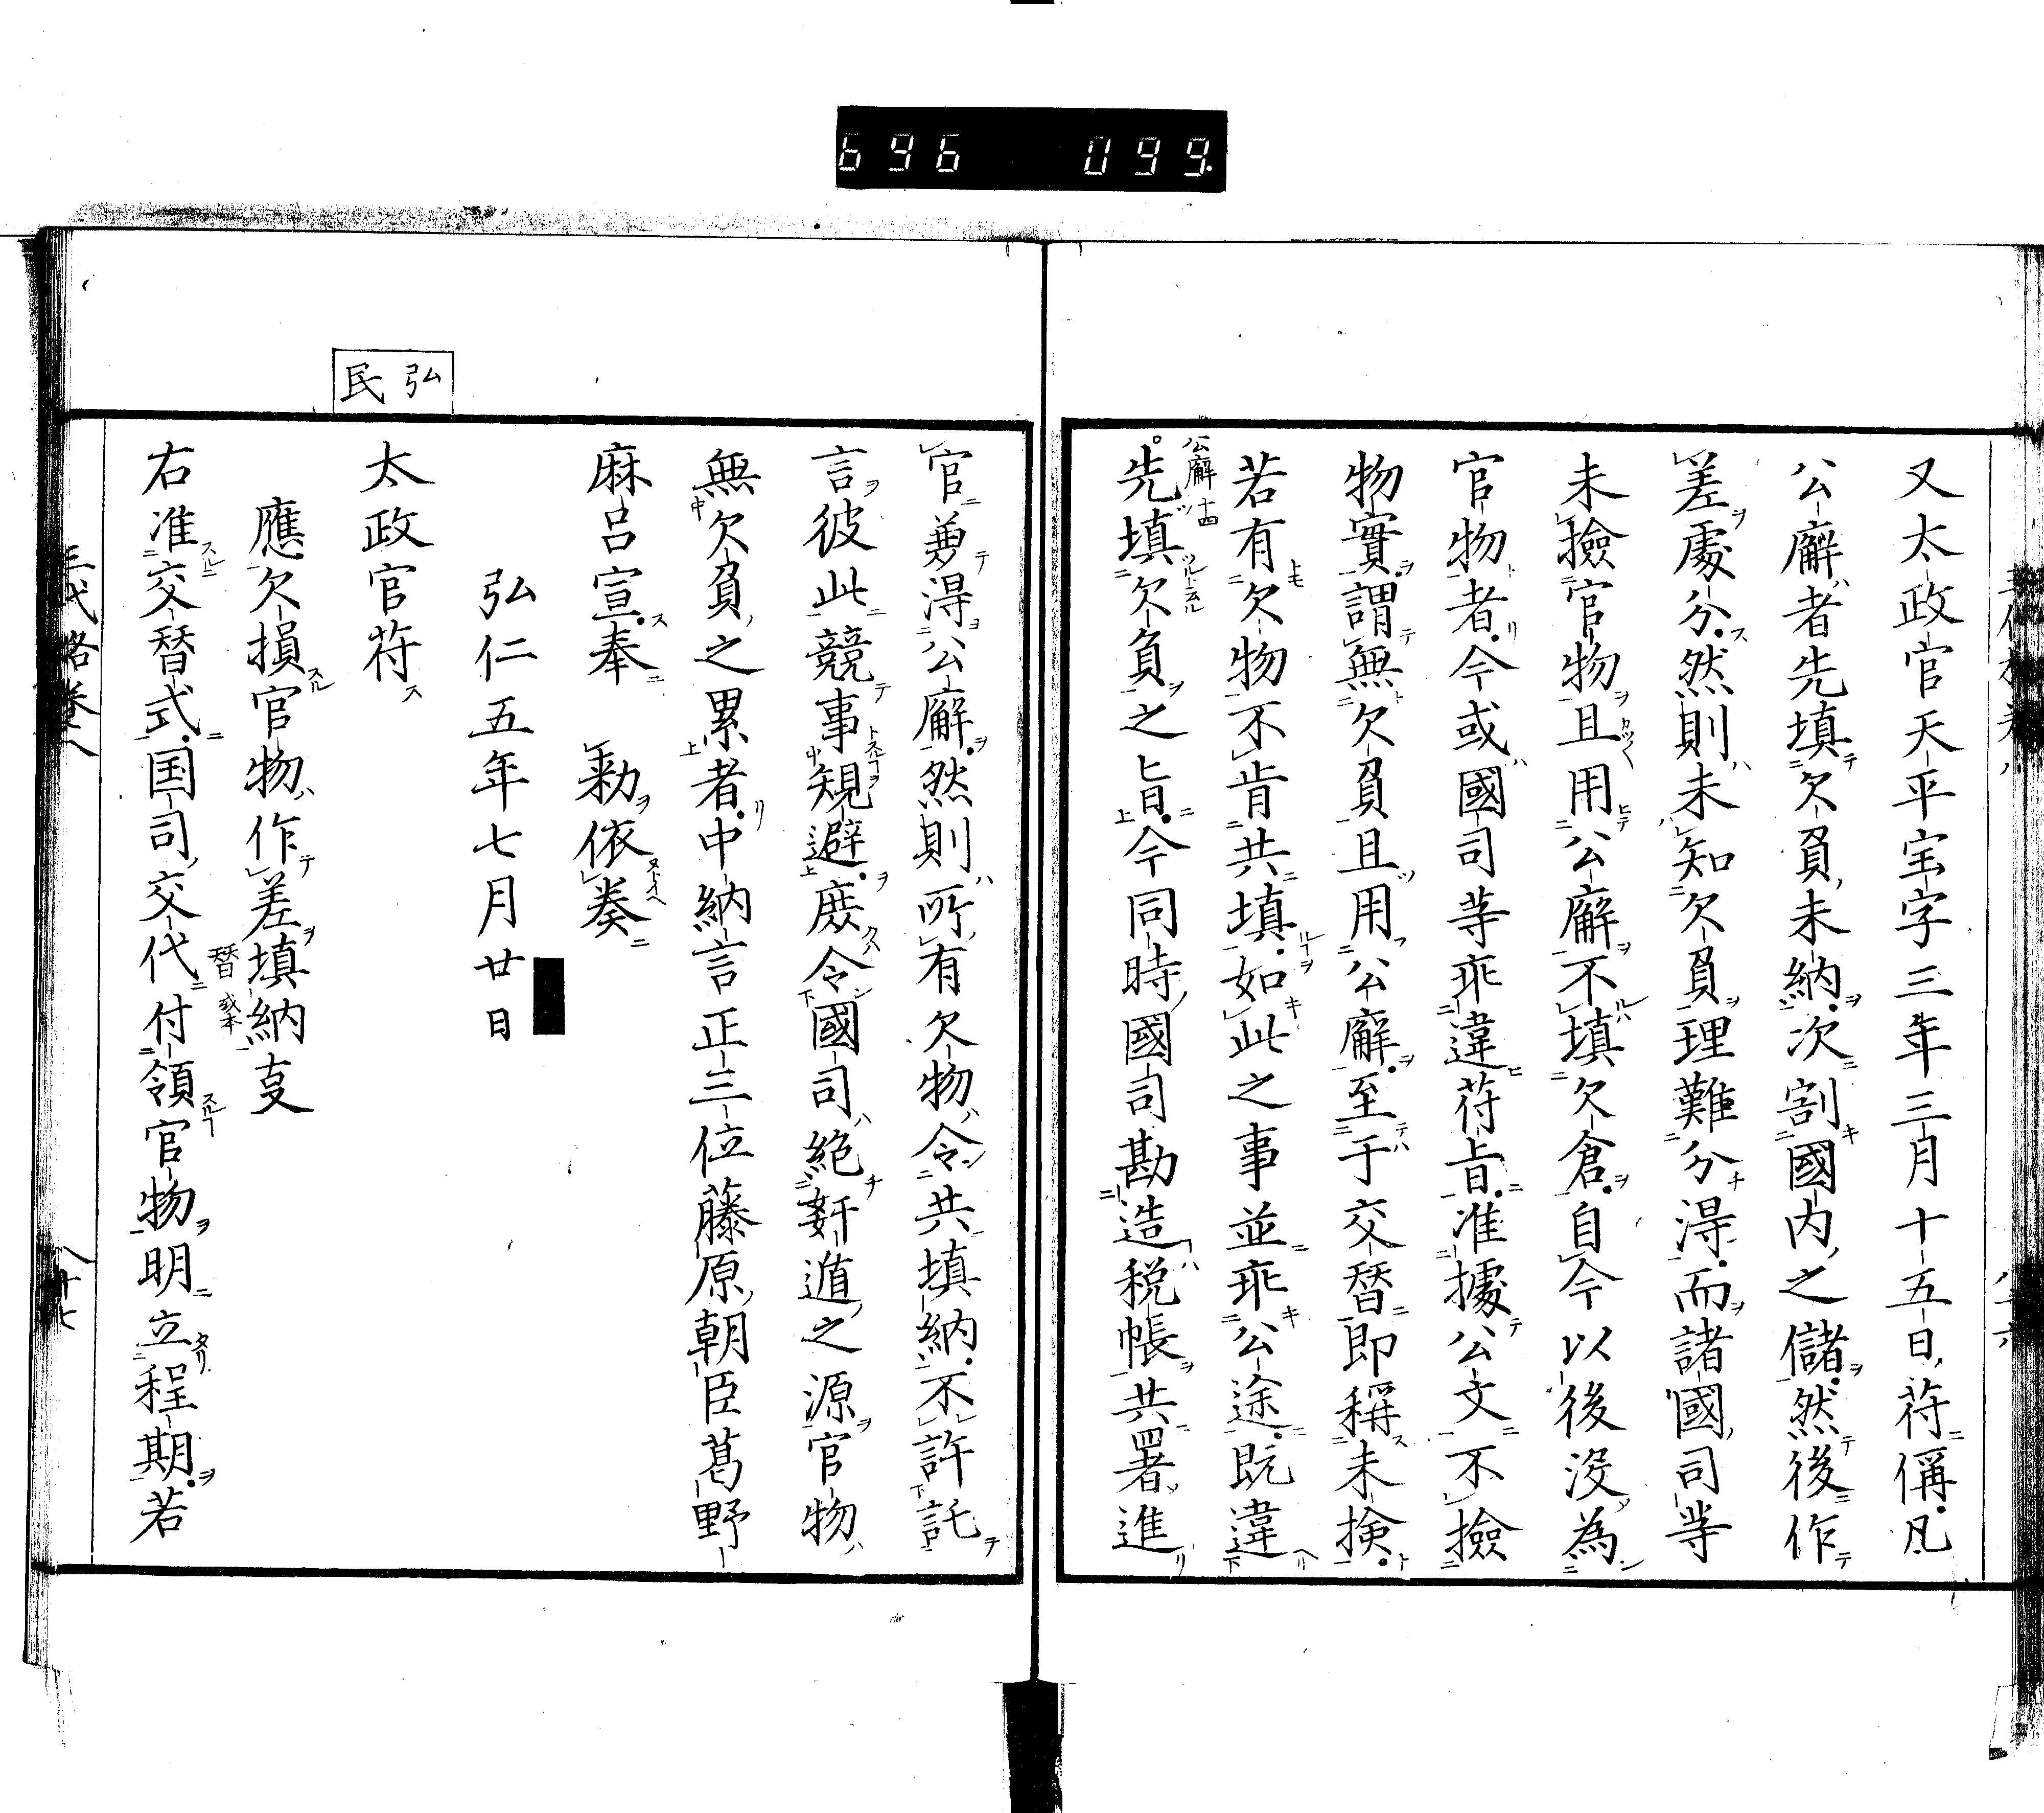 696 099.
又太政官天平宝字三年三月十五日符偁凡
公廨者先填欠負未納次割國内之儲然後作
差處分然則未知欠負理難分得而諸國司等
未撿官物且用公廨不填欠倉自今以後没為
官物者今或國司等乖違符旨准據公文不撿
物實謂無欠負且用公廨至于交替即稱未検
若有欠物不肯共填如此之事並乖公途既違
公廨十四
先填欠負之旨今同時國司勘造税帳共署進
官兼得公廨然則所有欠物令共填納不許託
言彼此競事規避庶令國司絶姧遁之源官物
無欠負之累者中納言正三位藤原朝臣葛野
麻呂宣奉　勅依奏
弘仁五年七月廿日
弘民
太政官符
應欠損官物作差填納支
替或本
右准交替式国司交代付領官物明立程期若